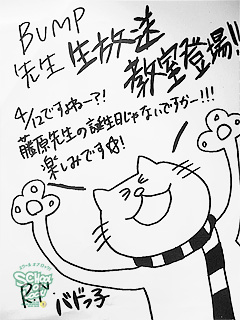 BUMP
先生 生放送
教室登場!!
4/12ですよねー?!
藤原先生の誕生日じゃないですかー!!!
楽しみです☆!
R.N
バドっ子